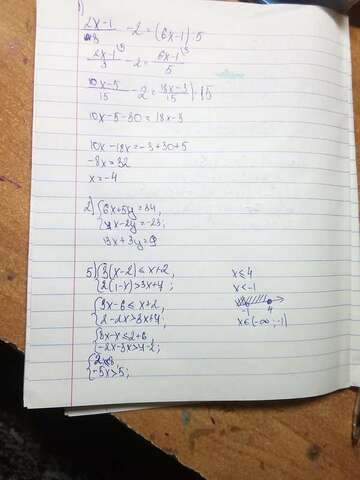 1)
2x-1/3 - 2 = (6x-1) · 5
2x-1/3 - 2 = 6x-1/5
10x-5/15 - 2 = 18x-3/15 | · 15
10x-5-30 = 18x-3
10x-18x = -3+30+5
-8x = 32
x = -4
2) { 6x+5y = 34,
{ 4x-2y = -23;
13x+3y = 9
5) { 3(x-2) ≤ x+2,
{ 2(1-x) > 3x+4;
{ 3x-6 ≤ x+2,
{ 2-2x > 3x+4;
{ 3x-x ≤ 2+6,
{ -2x-3x > 4-2;
{ 2x ≤ 8
{ -5x > 5;
x ≤ 4
x < -1
-1 4
x ∈ (-∞; -1)